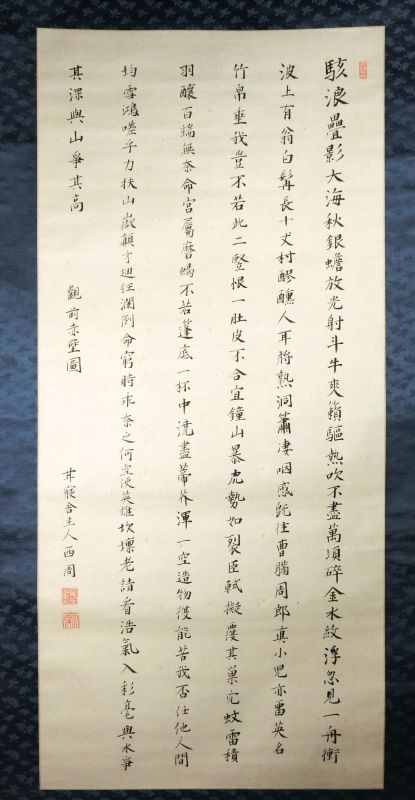 駭浪疊影大海秋銀蟾放光射斗牛爽籟驅熱吹不盡萬頃碎金水紋浮忽見一舟衝
波上有翁白髯長十丈村醪醺人耳將熱洞簫凄咽感既往曹瞞周郎真小児亦畱英名
竹帛垂我豈不若此二竪恨一肚皮不合宜鐘山暴虎勢如裂臣軾擬覆其巢穴蚊雷積
羽釀百端無奈命宮屬磨蝎不若蓬底一杯中澆盡蔕芥渾一空造物役能苦我否任他人間
均雪鴻嗟乎力扶山嶽顛才廻狂瀾倒命窮時乖奈之何空使英雄坎壈老請看浩氣入彩毫與水爭
其深與山爭其高
觀前赤壁圖
甘寝舎主人西周